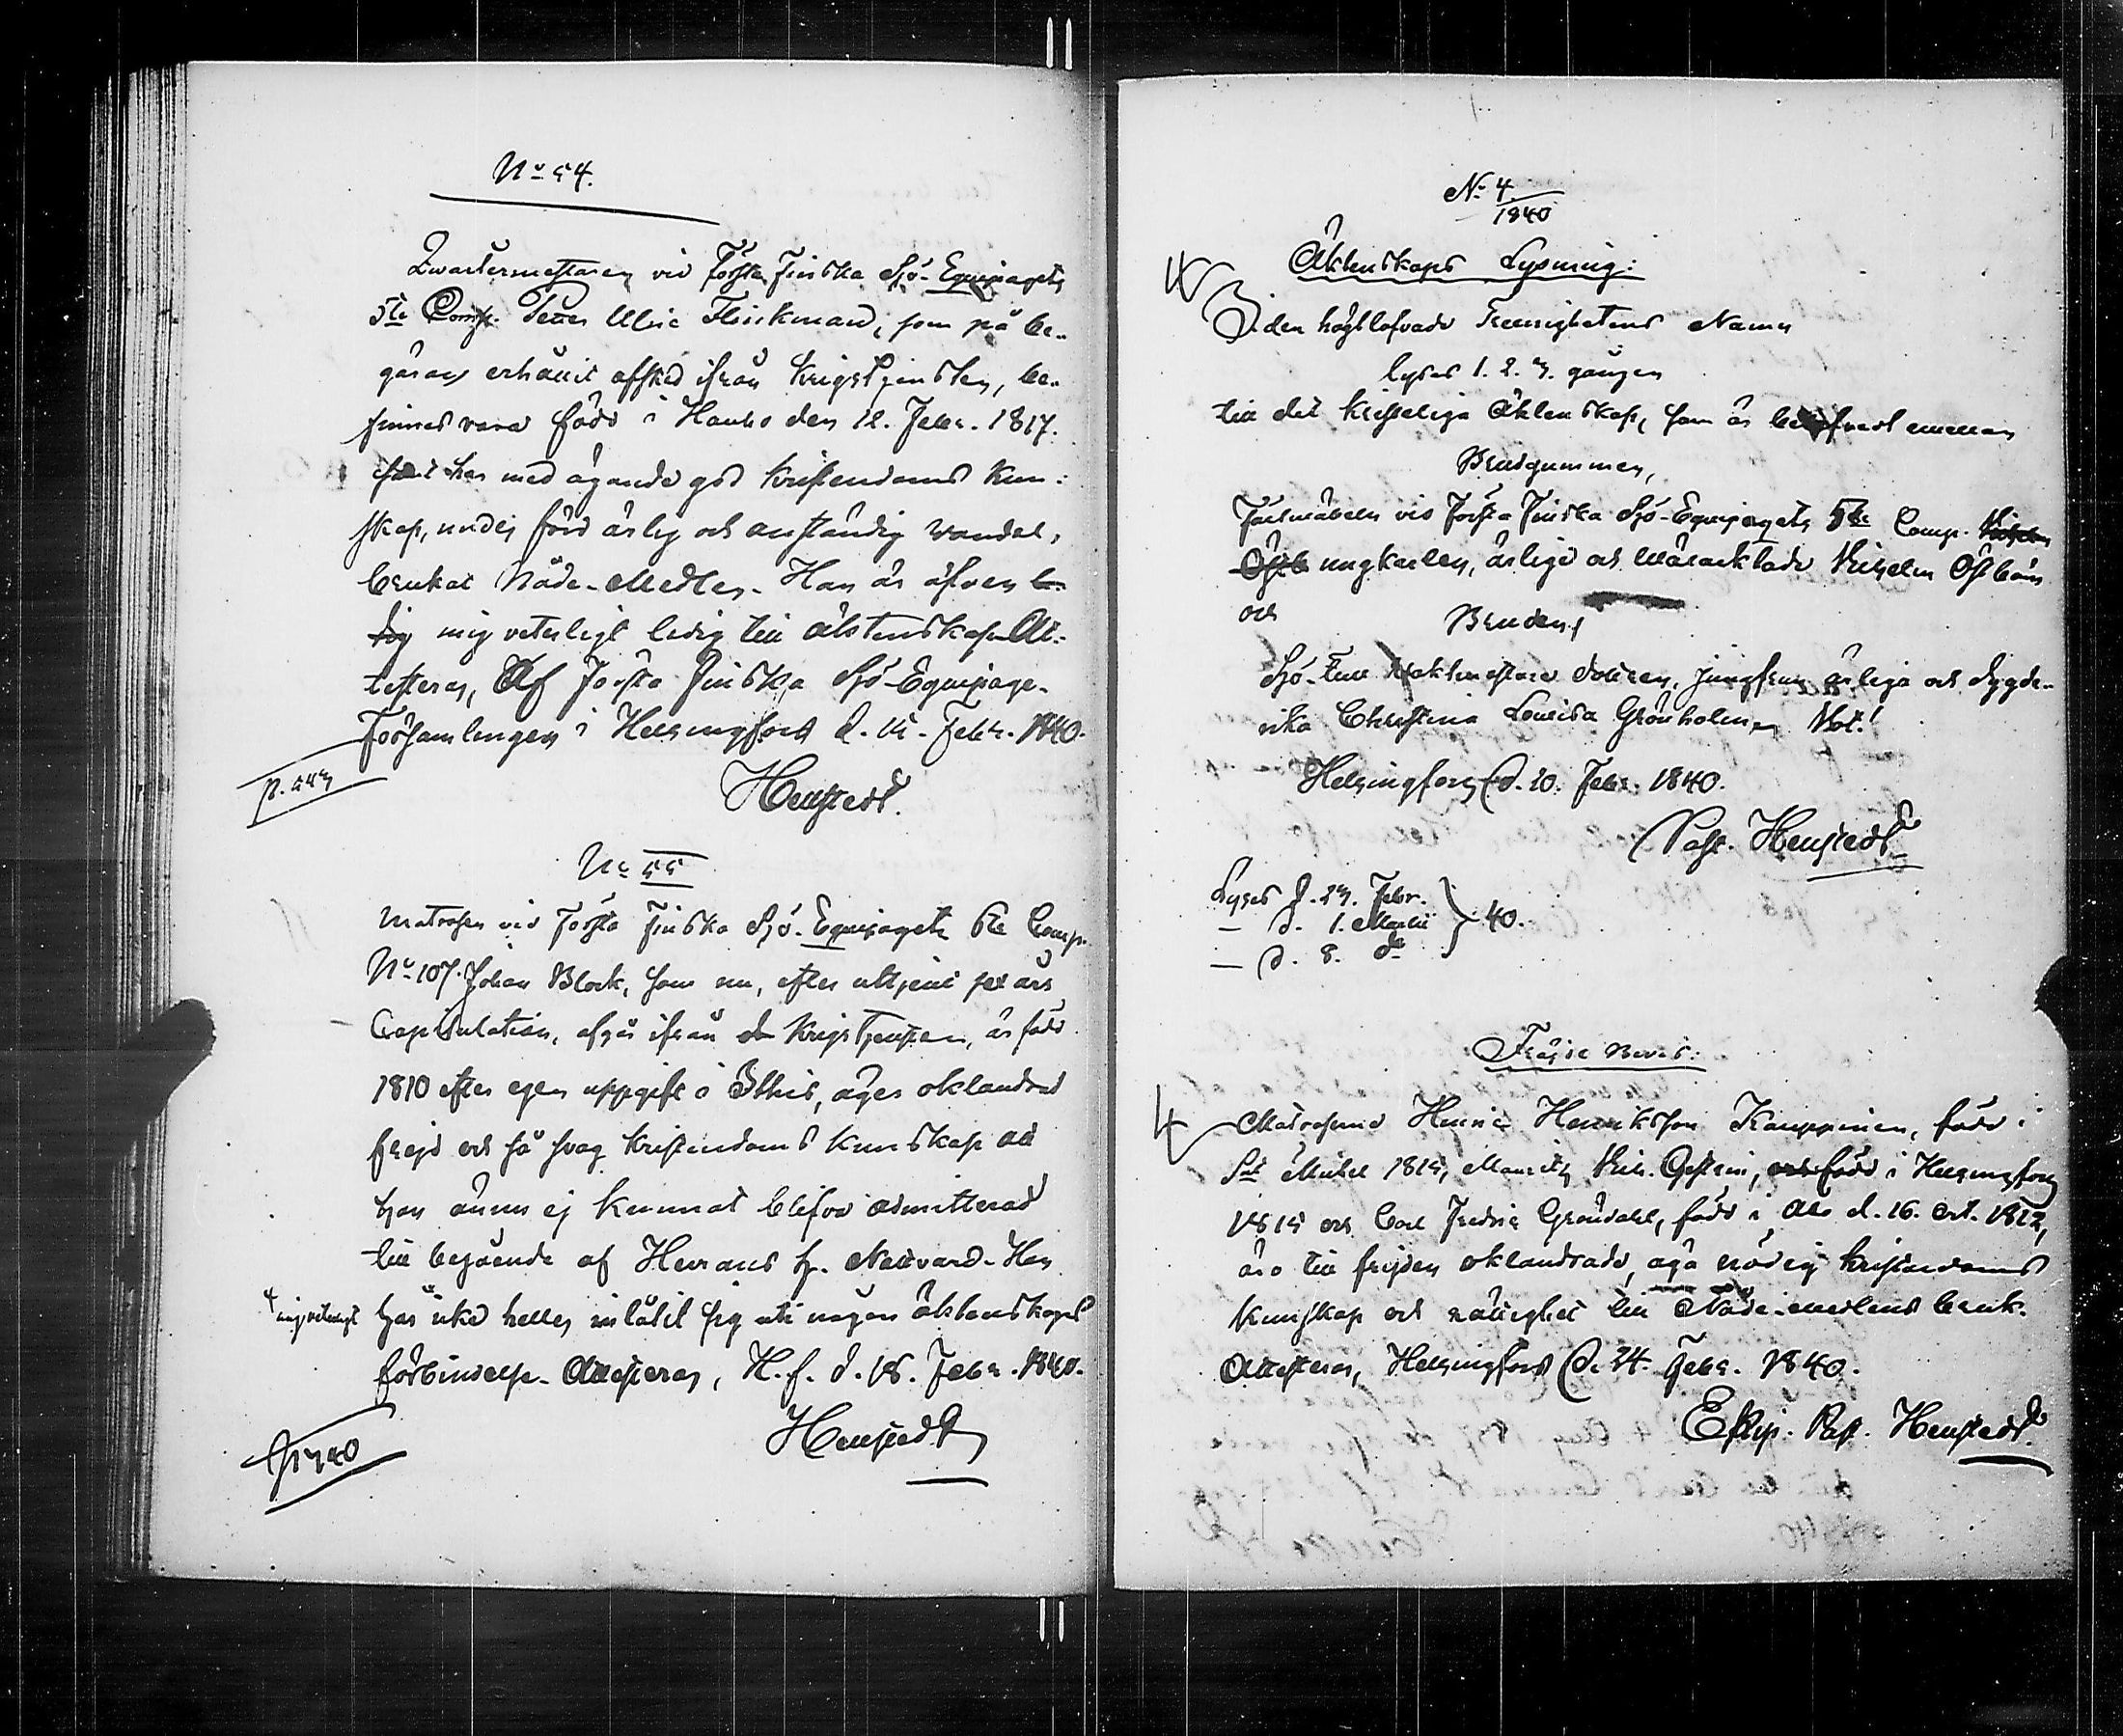 No 54.
Qvartermästaren vid Första Finska Sjö-Equipagets
5te Comp. Petter Ulric Flinkman, som på be-
gäran erhållit afsked ifrån Krigstjensten, be-
finnes vara född i Hauho den 12. Febr. 1817.
samt har med ägande god kristendoms kun-
skap, under förd ärlig och anständig vandel,
brukat Nåde-Medlen. Han är äfven
mig veterligt ledig till äktenskap. At-
testeras, Af Första Finska Sjö-Equipage-
Församlingen i Helsingfors d. Febr. 1840.
Hellstedt.
p. 443
No 55
Matrosen vid Första Finska Sjö-Equipagets Comp.
No 107. Johan Block, som nu, efter uttjent sex års
Capitulation, afgår ifrån Krigstjensten, är född
1810 efter egen uppgift i Itthis, äger oklandrad
frejd och så svag kristendoms kunskap att
han ännu ej kunnat blifva admitterad
till begående af Herrans h. Nattvard. Han
mig veterligt
har icke heller inlåtit sig uti någon äktenskaps
förbindelse. Attesteras, H.f. d. 18. Febr. 1840.
Hellstedt
No 4
1840
Äktenskaps Lysning:
I den högtlofvade Treenighetens Namn
lyses 1. 2. 3. gången
till det kristeliga Äktenskap, som är emellan
Brudgummen,
vid Första Finska Sjö-Equipagets 5te Comp.
ungkarlen, ärlige och Wälaktade Vilhelm Östbom
och
Bruden,
Sjö-Tull Vaktmästare dottren, jungfrun ärliga och dygde-
rika Christina Lovisa Grönholm,
Helsingfors d. 20. Febr. 1840.
Past. Hellstedt
Lyses d. 23. Febr.
— d. 1. Martii } 40.
— d. 8. do
Frejde Bevis:
Matroserne Henric Henriksson Kauppinen, född i
St Michel 1815, Mauritz Vilh. född i Helsingfors
1815 och Carl Fredric Gröndahl, född i Åbo d. 16. Oct. 1812,
äro till frejden oklandrade, äga nödig kristendoms
kunskap och rättighet till Nåde-medlens bruk.
Attesteras, Helsingfors d. 24. Febr. 1840.
Past. Hellstedt.